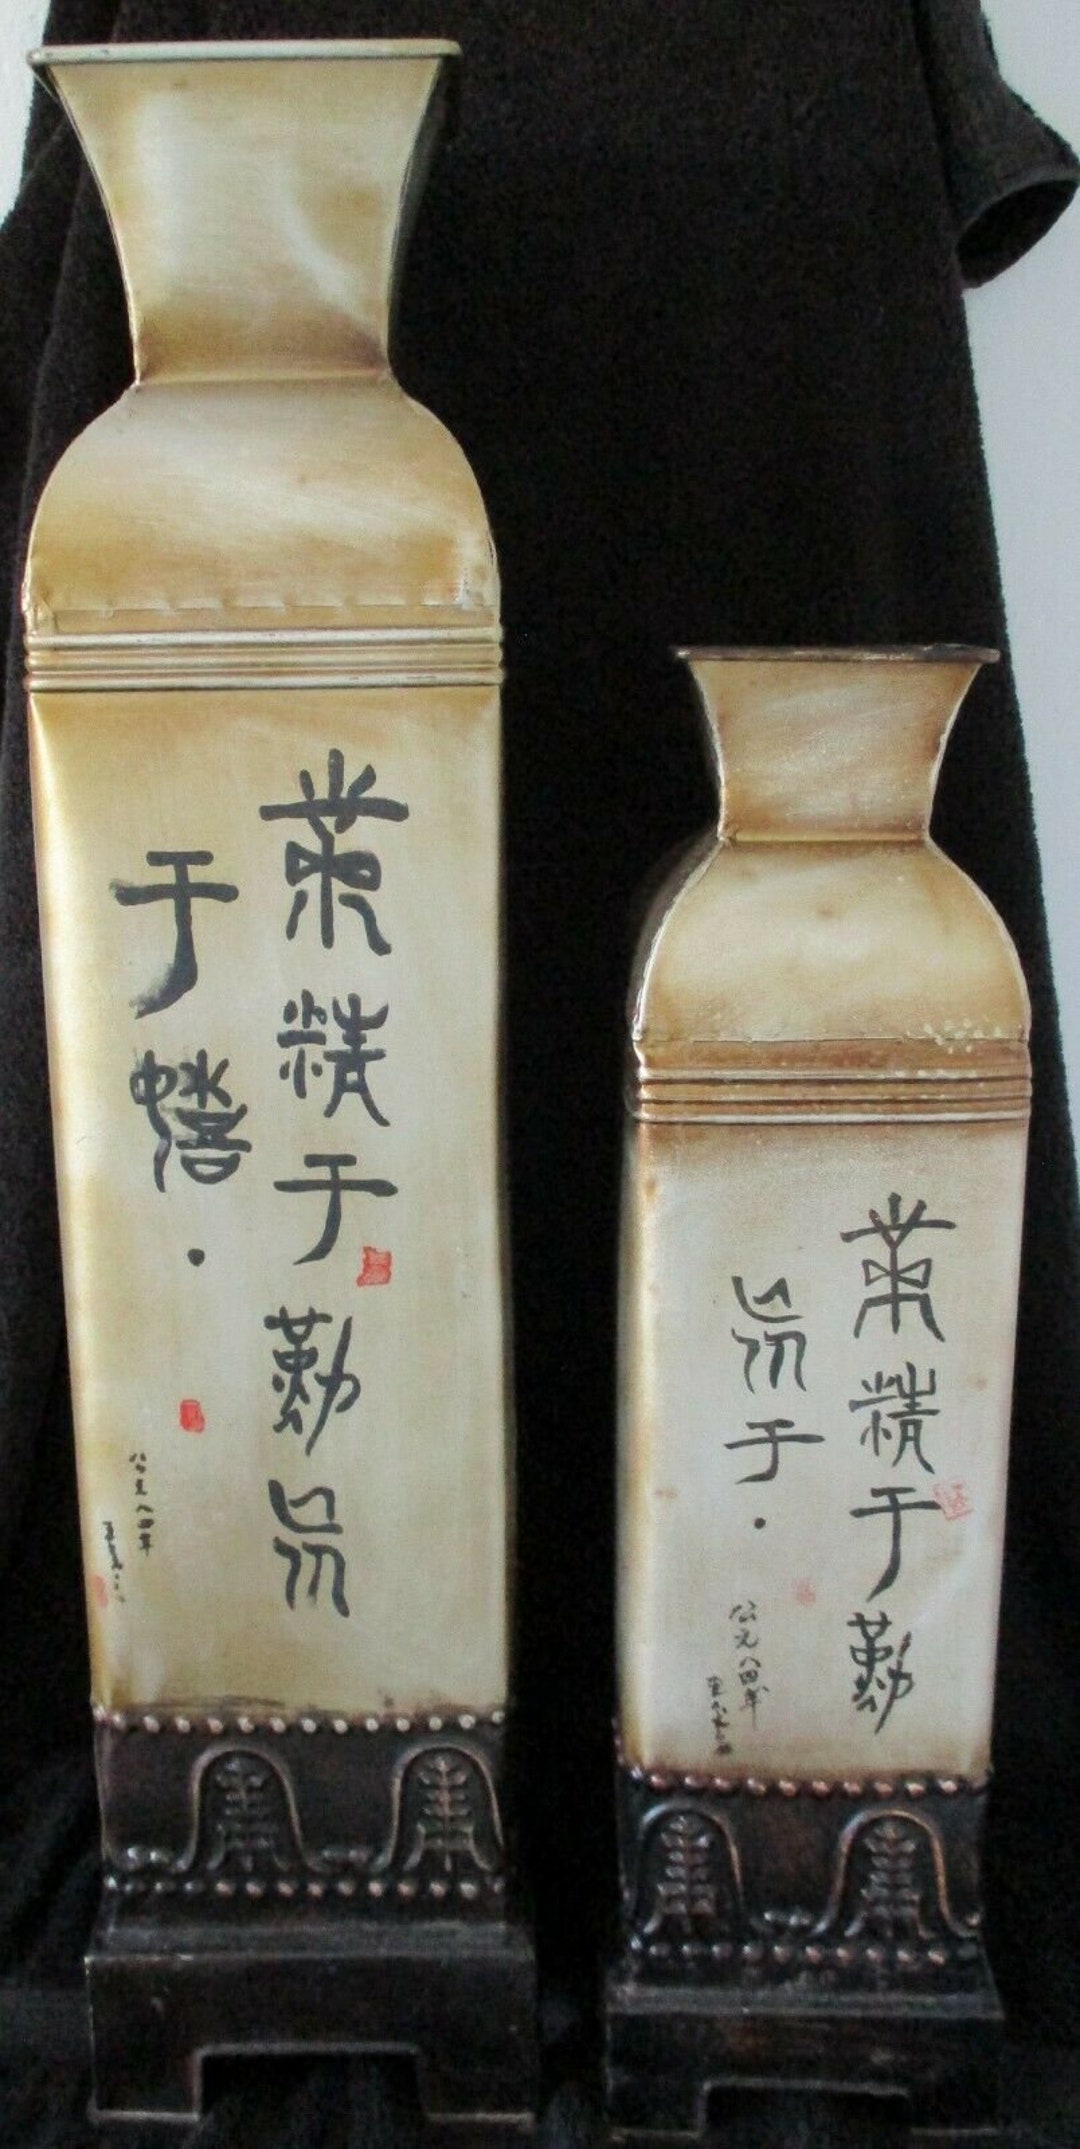 業精于勤巟
于嬉·
公元八四年
業精于勤
巟于·
公元八四年